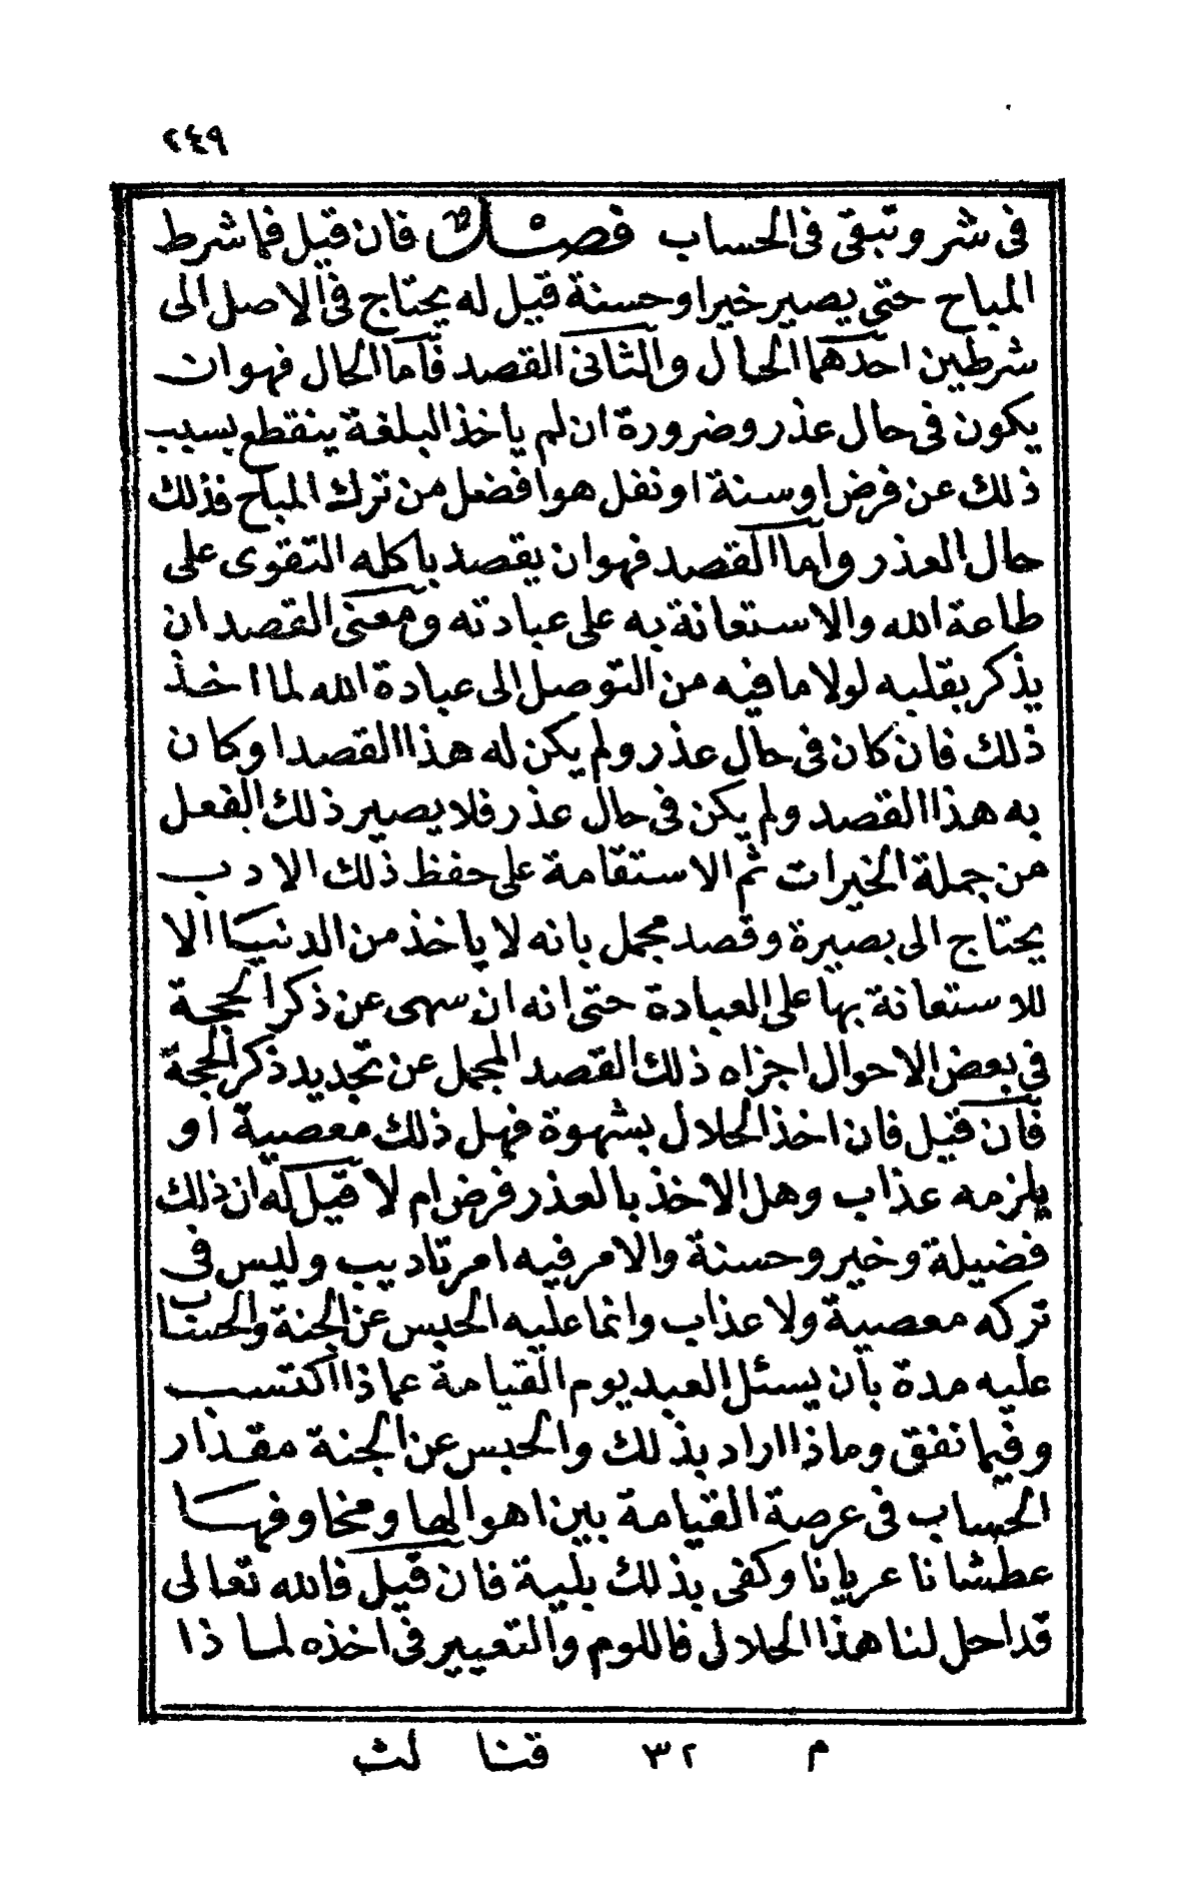 ٢٤٩
فى شر وتبقى فى الحساب فصل فان قيل فما شرط
المباح حتى يصير خيرا وحسنة قيل له يحتاج فى الاصل الى
شرطين احدهما الحال والثانى القصد فاما الحال فهو ان
يكون فى حال عذر وضرورة ان لم ياخذ البلغة ينقطع بسبب
ذلك عن فرض او سنة او نفل هو افضل من ترك المباح فذلك
حال العذر واما القصد فهو ان يقصد باكله التقوى على
طاعة الله والاستعانة به على عبادته ومعنى القصد ان
يذكر بقلبه لولا ما فيه من التوصل الى عبادة الله لما اخذ
ذلك فان كان فى حال عذر ولم يكن له هذا القصد او كان
به هذا القصد ولم يكن فى حال عذر فلا يصير ذلك الفعل
من جملة الخيرات ثم الاستقامة على حفظ ذلك الادب
يحتاج الى بصيرة وقصد مجمل بانه لا ياخذ من الدنيا الا
للاستعانة بها على العبادة حتى انه ان سهى عن ذكر الحجة
فى بعض الاحوال اجزاه ذلك القصد المجمل عن تجديد ذكر الحجة
فان قيل فان اخذ الحلال بشهوة فهل ذلك معصية او
يلزمه عذاب وهل الاخذ بالعذر فرض ام لا قيل له ان ذلك
فضيلة وخير وحسنة والامر فيه امر تاديب وليس فى
تركه معصية ولا عذاب وانما عليه الحبس عن الجنة والحساب
عليه مدة بان يسئل العبد يوم القيامة عماذا اكتسب
وفيما نفق وماذا اراد بذلك والحبس عن الجنة مقدار
الحساب فى عرصة القيامة بين اهوالها ومخاوفها
عطشانا عريانا وكفى بذلك بلية فان قيل فالله تعالى
قد احل لنا هذا الحلال فى فاللوم والتعيير فى اخذه لماذا
م ٣٢ قنا لث